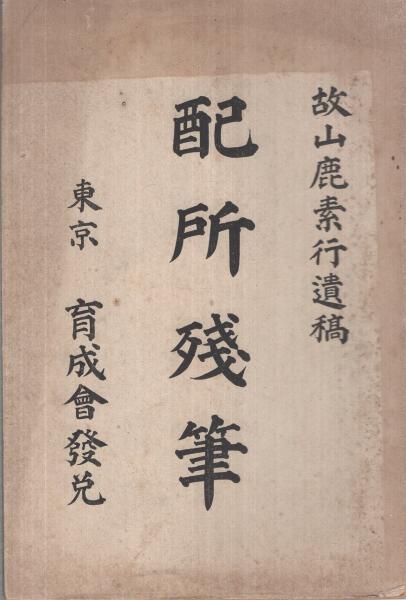 故山鹿素行遺稿
配所殘筆
東京 育成會發兌